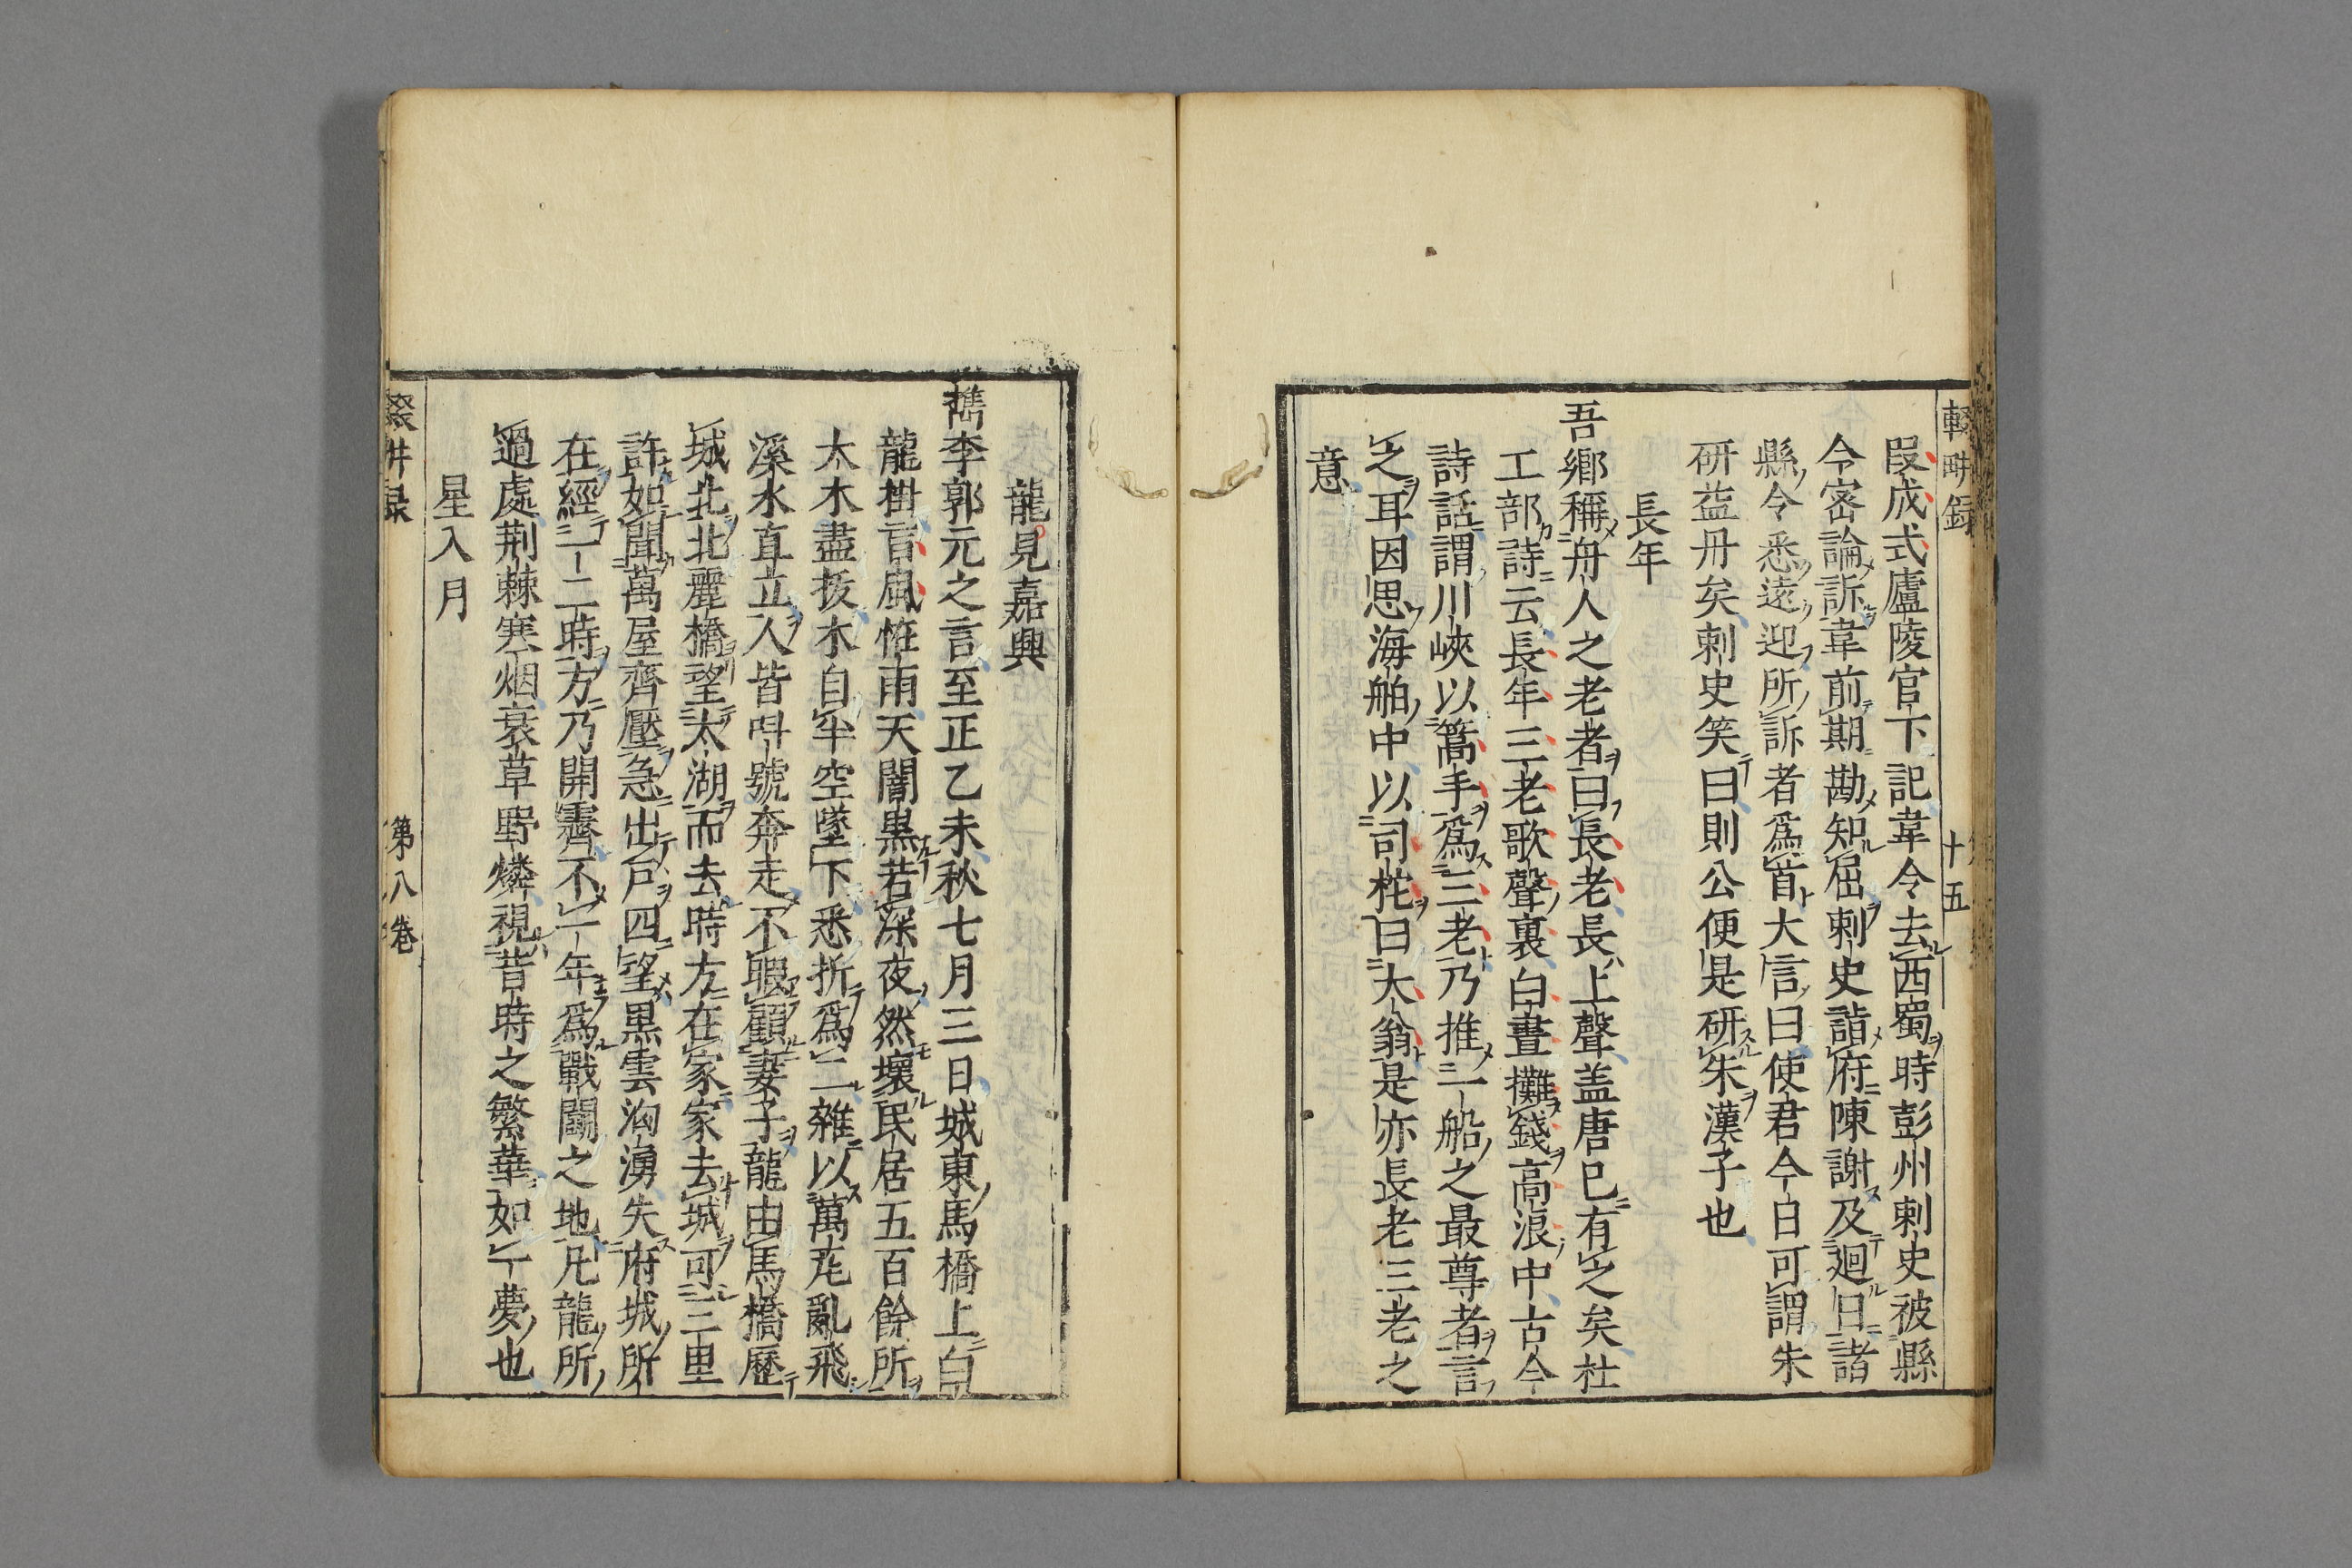 輟畊録
十五
段成式廬陵官下記韋令去西蜀時彭州刺史被縣
令宻論訴韋前期勘知屈刺史詣府陳謝及迴日諸
縣令悉遠迎所訴者爲首大言曰使君今日可謂朱
研益丹矣刺史笑曰則公便是研朱漢子也
長年
吾鄉稱舟人之老者曰長老長上聲盖唐已有之矣杜
工部詩云長年三老歌聲裏白晝攤錢高浪中古今
詩話謂川峽以篙手爲三老乃推一船之最尊者言
之耳因思海舶中以司柁曰大翁是亦長老三老之
意
龍見嘉興
檇李郭元之言至正乙未秋七月三日城東馬橋上白
龍掛言風恠雨天闇黒若深夜然壞民居五百餘所
大木盡拔木自半空墜下悉折爲二雜以萬瓦亂飛
溪水直立人皆呌號奔走不暇顧妻子龍由馬橋歷
城北北麗橋望太湖而去時方在家家去城可三里
許如聞萬屋齊壓急出戸四望黒雲洶湧失府城所
在經一二時方乃開霽不一年爲戰鬭之地凡龍所
過處荆棘寒烟衰草野燐視昔時之繁華如一夢也
星入月
輟畊录
第八巻